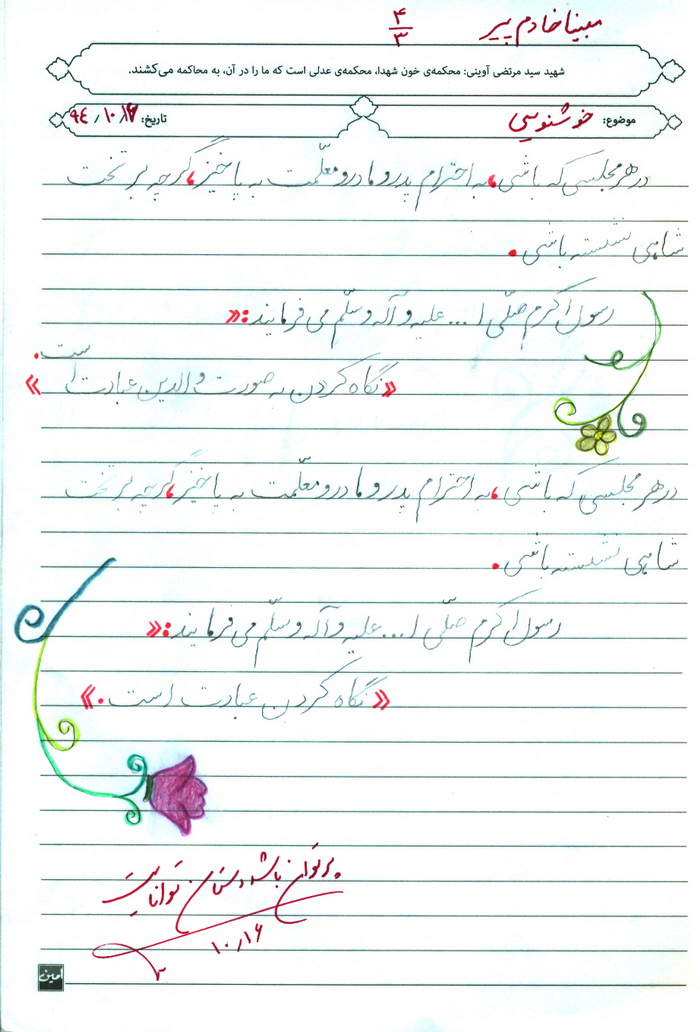 مبینا خادم پیر
۴
۳
شهید سید مرتضی آوینی: محکمه‌ی خون شهدا، محکمه‌ی عدلی است که ما را در آن، به محاکمه می‌کشند.
موضوع: خوشنویسی
تاریخ: ۹۴/۱۰/۱۶
در هر مجلسی که باشی، به احترام پدر و مادر و معلّمت به پا خیز، گرچه بر تخت
شاهی نشسته باشی.
رسول اکرم صلّی ا... علیه و آله و سلّم می فرمایند:«
«نگاه کردن به صورت والدین عبادت است.»
در هر مجلسی که باشی، به احترام پدر و مادر و معلّمت به پا خیز، گرچه بر تخت
شاهی نشسته باشی.
رسول اکرم صلّی ا... علیه و آله و سلّم می فرمایند:«
«نگاه کردن عبادت است.»
پرتوان باشد دستان توانایت
۱۰/۱۶
امین